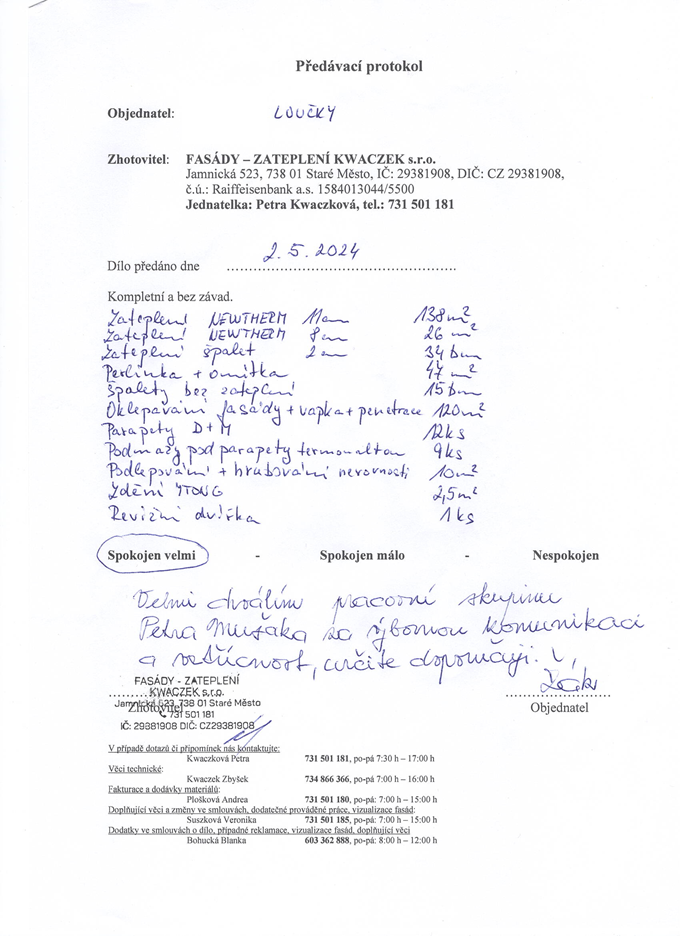 Předávací protokol
Objednatel: LOUČKY
Zhotovitel: FASÁDY – ZATEPLENÍ KWACZEK s.r.o.
Jamnická 523, 738 01 Staré Město, IČ: 29381908, DIČ: CZ 29381908,
č.ú.: Raiffeisenbank a.s. 1584013044/5500
Jednatelka: Petra Kwaczková, tel.: 731 501 181
Dílo předáno dne 2.5.2024
Kompletní a bez závad.
Zateplení NEWTHERM 11cm 138m²
Zateplení NEWTHERM 8cm 26 m²
Zateplení špalet 2cm 34 bm
Perlinka + omítka 47 m²
Špalety bez zateplení 15bm
Oklepávání fasády + vapka + penetrace 120m²
Parapety D+M 12ks
Podmazy pod parapety 9ks
Podlepování + hrubování nerovností 10m²
Zdění YTONG 2,5m²
Revizní dvířka 1 ks
Spokojen velmi - Spokojen málo - Nespokojen
Velmi chválím pracovní skupinu
Petra za výbornou komunikaci
a vstřícnost, určitě doporučuji.
FASÁDY - ZATEPLENÍ
KWACZEK s.r.o.
Jamnická 523, 738 01 Staré Město
Zhotovitel Objednatel
731 501 181
IČ: 29381908 DIČ: CZ29381908
V případě dotazů či připomínek nás kontaktujte:
Kwaczková Petra 731 501 181, po-pá 7:30 h – 17:00 h
Věci technické:
Kwaczek Zbyšek 734 866 366, po-pá 7:00 h – 16:00 h
Fakturace a dodávky materiálů:
Plošková Andrea 731 501 180, po-pá: 7:00 h – 15:00 h
Doplňující věci a změny ve smlouvách, dodatečné prováděné práce, vizualizace fasád:
Suszková Veronika 731 501 185, po-pá: 7:00 h – 15:00 h
Dodatky ve smlouvách o dílo, případné reklamace, vizualizace fasád, doplňující věci
Bohucká Blanka 603 362 888, po-pá: 8:00 h – 12:00 h